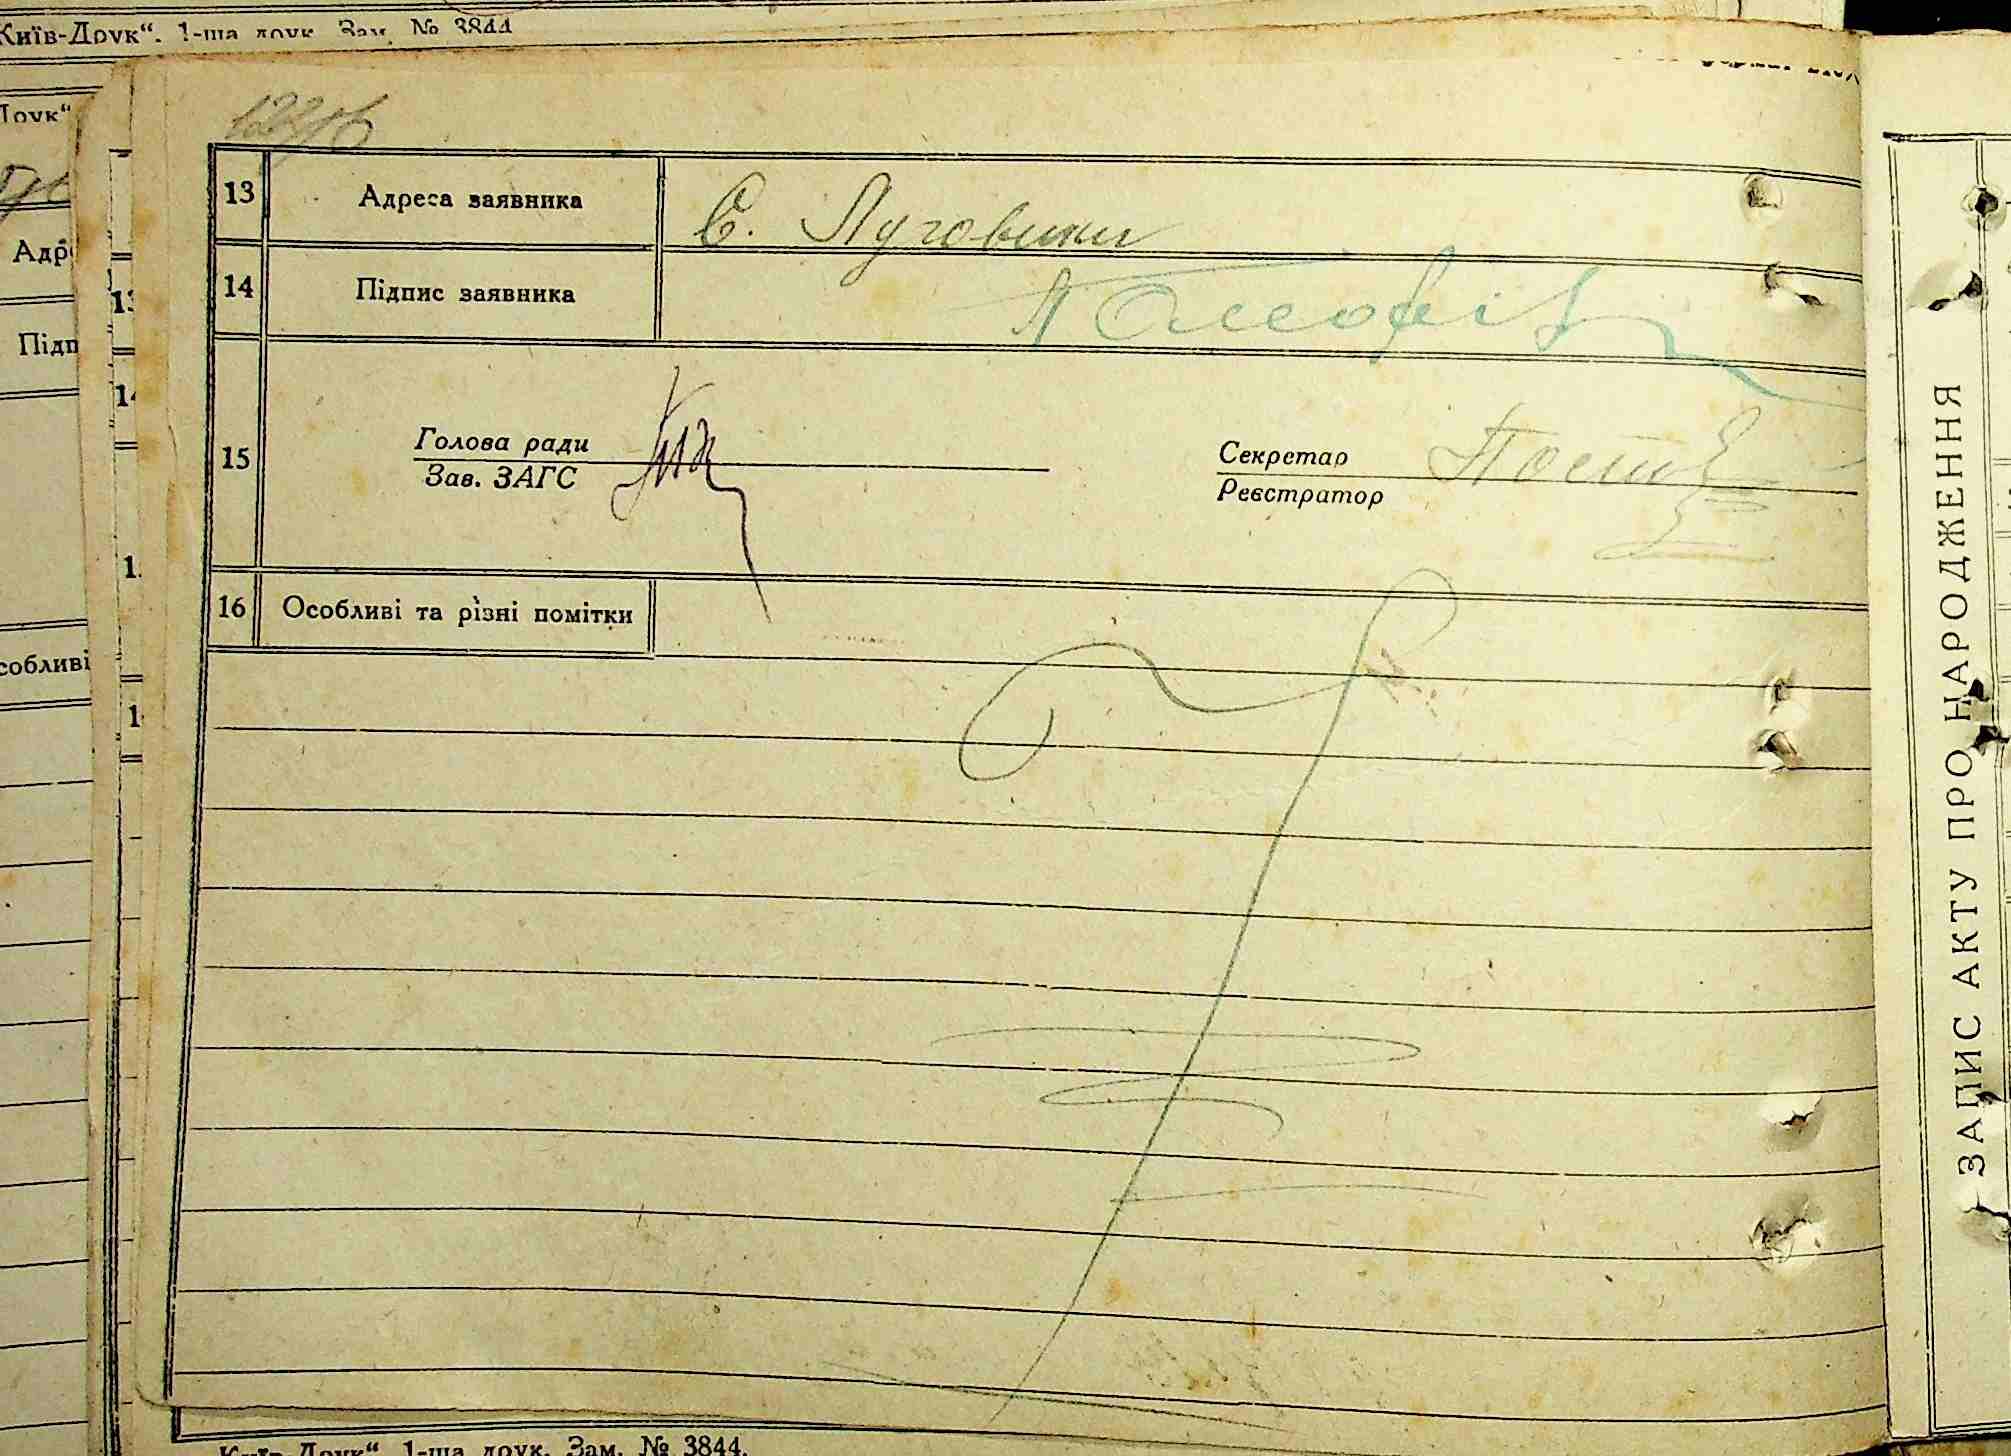 Київ-Друк“. 1-ша друк. Зам. № 3844
Друк“
13 Адреса заявника С. Луговики
14 Підпис заявника
15 Голова ради
Зав. ЗАГС
Секретар
Реєстратор
16 Особливі та різні помітки
Адр
13
Підп
14
собливі
ЗАПИС АКТУ ПРО НАРОДЖЕННЯ
Київ-Друк“. 1-ша друк. Зам. № 3844.